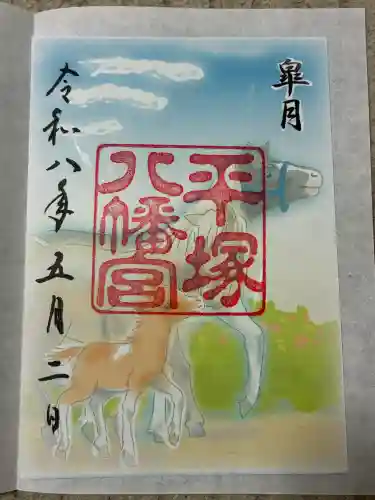 皐月
平塚
八幡宮
令和八年五月二日